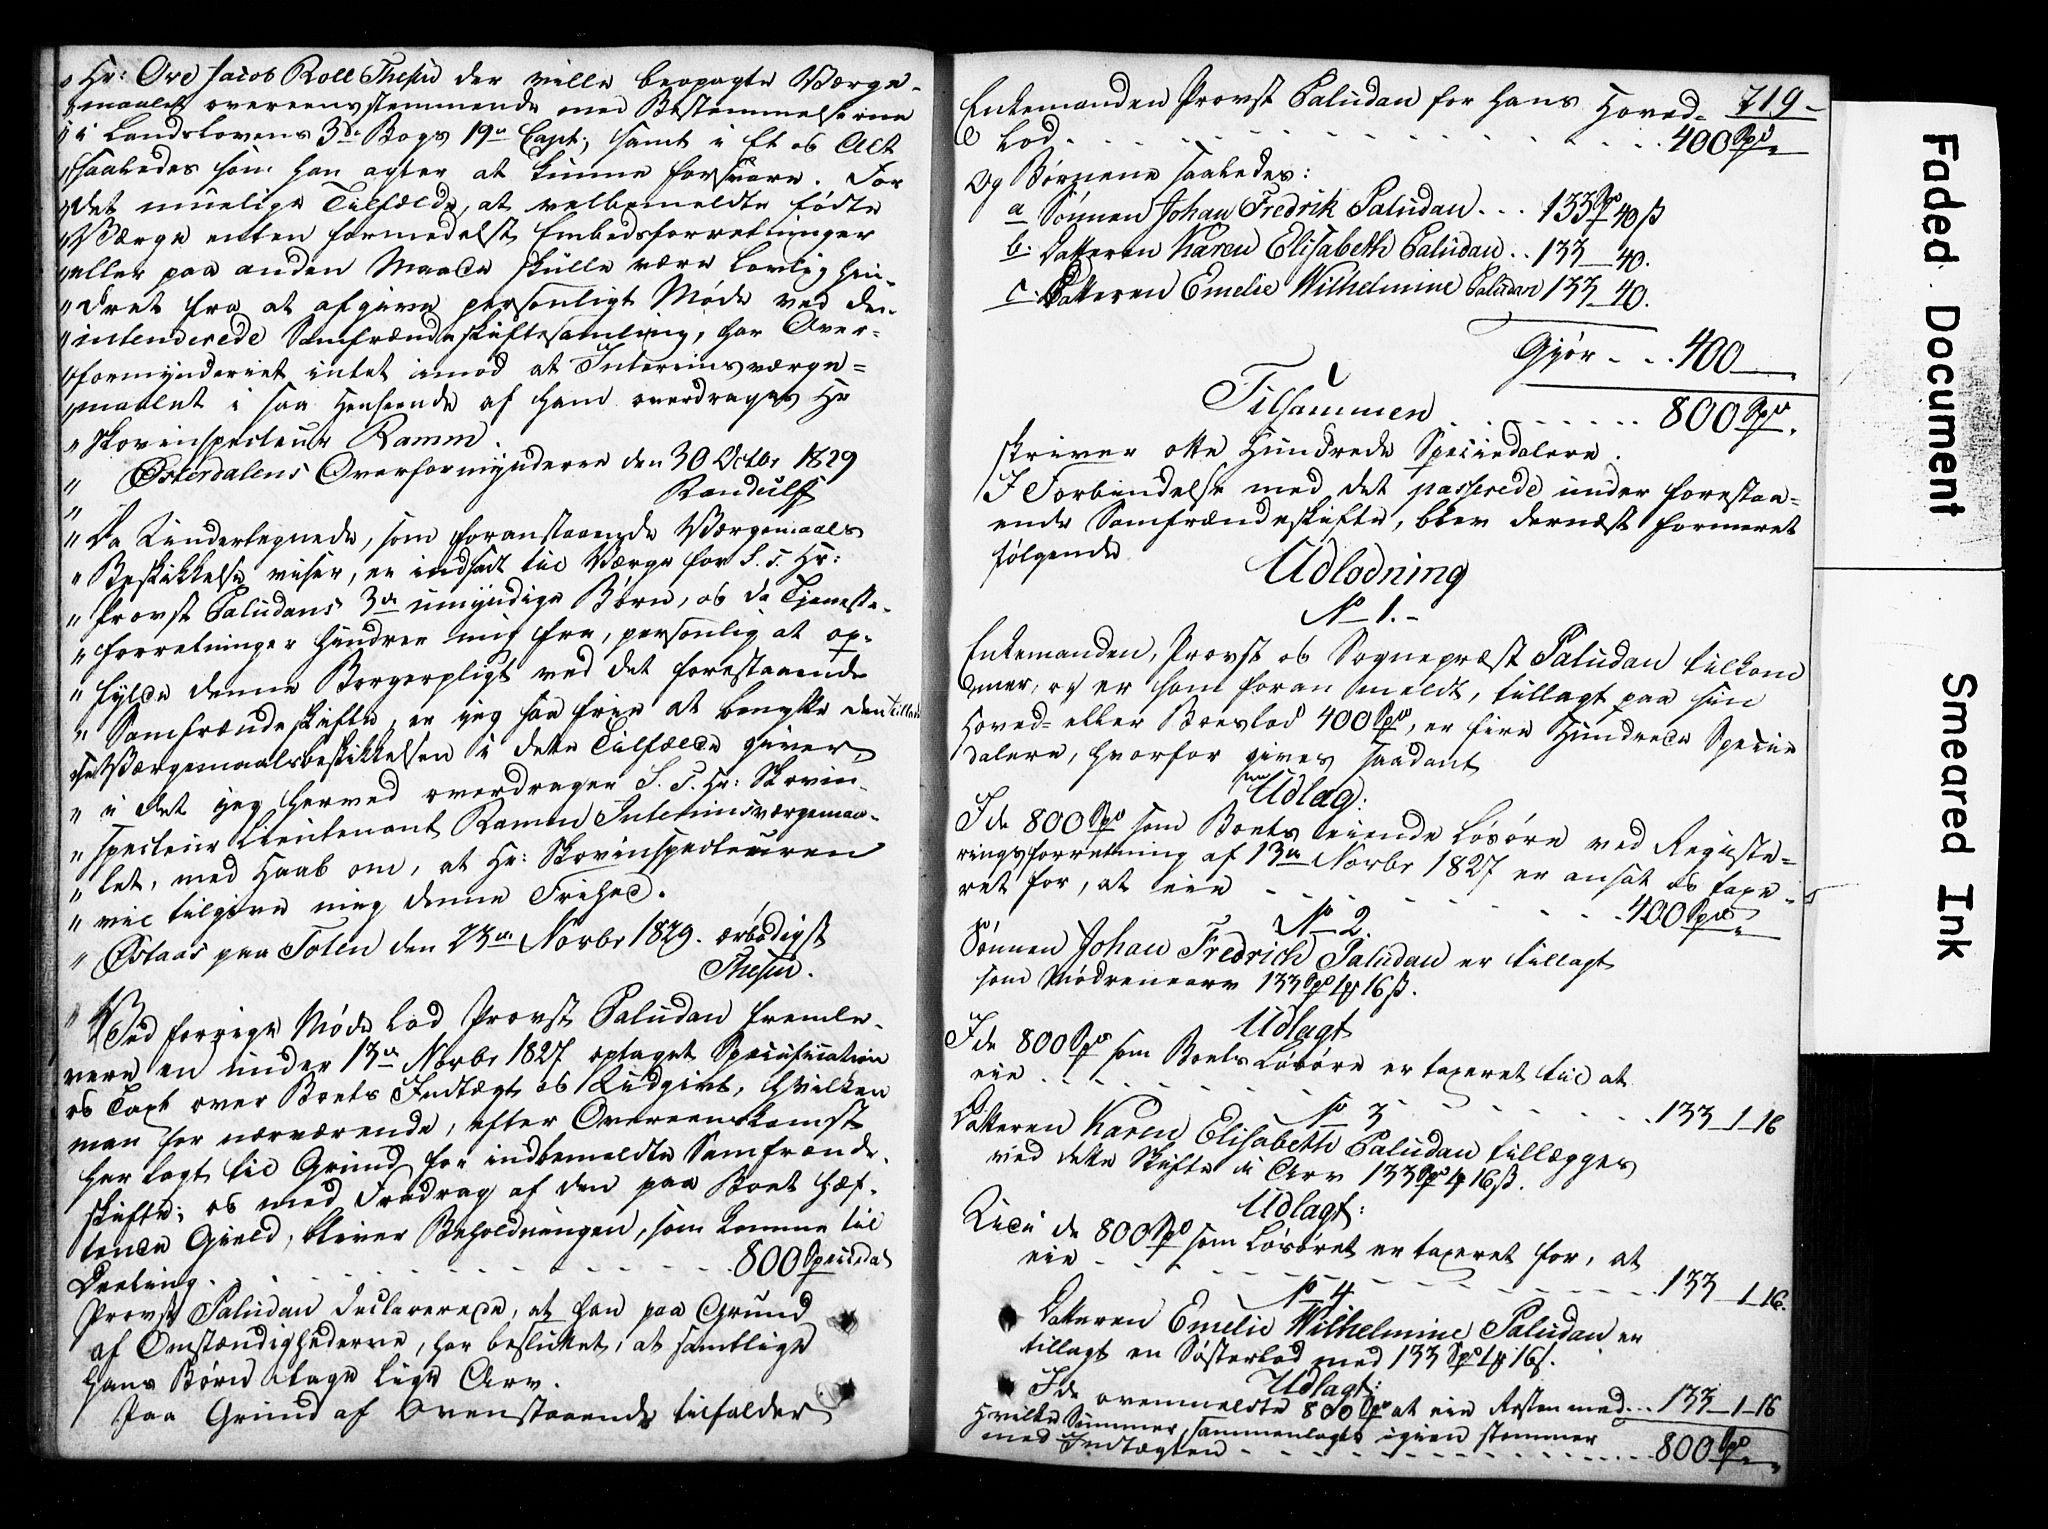 " Hr: Ove Jacob Roll Thesen der ville besørge Værge-
" maalet overeensstemmende med Bestemmelserne
" i Landslovens 3die Bogs 19de Capt:, samt i Et og Alt
" saaledes som han agter at kunne forsvare. For
" det muelige Tilfælde, at velbemeldte fødte
" Værge enten formedelst Embedsforretninger
" eller paa anden Maade skulle være lovlig hin-
" dret fra at afgive personligt Møde ved den
" intenderede Samfrændeskiftesamling, har Over-
" formynderiet intet imod at Interimsværge-
" maalet i saa Henseende af ham overdrages Hr
" Skovinspecteur Ramm.
" Østerdalens Overformynderie den 30 Octbr 1829
" Randulff
" Da Undertegnede, som foranstaaende Værgemaals
" Beskikkelse viser, er indsat til Værge for S. T. Hr:
" Provst Paludans 3de umyndige Børn, og da Tjeneste-
" forretninger hindrer mig fra, personlig at op-
" fylde denne Borgerpligt ved det forestaaende
" Samfrændeskifte, er jeg saa frie at benytte den Tilla-
" else Værgemaalsbeskikkelsen i dette Tilfælde giver
" i det jeg herved overdrager S. T. Hr: Skovin-
" specteur Lieutenant Ramm Interimsværgemaa-
" let, med Haab om, at Hr: Skovinspecteuren
" vil tilgive mig denne Frihed.
" Østaas paa Toten den 23de Novbr 1829. ærbødigst
" Thesen.
Ved forrige Møde lod Provst Paludan fremle-
vere en under 13de Novbr 1827 optaget Specification
og Taxt over Boets Indtægt og Udgivt, hvilken
man for nærværende, efter Overeenskomst
har lagt til Grund for indbemeldte Samfrænde-
skifte; og med Fradrag af den paa Boet hæf-
tende Gield, bliver Beholdningen, som komme til
Deeling . . . . . 800 Speciedal
Provst Paludan declarerede, at han paa Grund
af Omstændighederne, har besluttet, at samtlige
hans Børn tage lige Arv.
Paa Grund af Ovenstaaende tilfalder
719-
Enkemanden Provst Paludan for hans Hoved-
Lod . . . . . 400 Spd
Og Børnene saaledes:
a Sønnen Johan Fredrik Paludan . . . 133 Spd 40 ß
b. Datteren Karen Elisabeth Paludan . . 133 - 40.
c. Datteren Emelie Wilhelmine Paludan 133 - 40.
Gjør - . . 400
Tilsammen . . . . . 800 Spd
skriver otte Hundrede Speciedalere.
I Forbindelse med det passerede under forestaa-
ende Samfrændeskifte, blev dernæst formeret
følgende
Udlodning
No 1.-
Enkemanden, Provst og Sognepræst Paludan tilkom-
mer, og er som foran meldt, tillagt paa sin
Hoved- eller Boeslod 400 Spd, er fire Hundrede Specie
dalere, hvorfor gives saadant
Udlæg:
I de 800 Spd som Boets eiende Løsøre ved Registe-
ringsforretning af 13de Novbr 1827 er ansat og taxe-
ret for, at eie . . . . . 400 Spd
No 2.
Sønnen Johan Fredrich Paludan er tillagt
som Mødrenearv 133 Spd 1 ₰ 16 ß.
Udlagt
I de 800 Spd som Boets Løsøre er taxeret til at
eie . . . . . 133 - 1 - 16
No 3
Datteren Karen Elisabeth Paludan tillægges
ved dette Skifte i Arv 133 Spd 1 ₰ 16 ß.
Udlagt:
Udi de 800 Spd som Løsøret er taxeret for, at
eie . . . . . 133 - 1 - 16.
No 4
Datteren Emelie Wilhelmine Paludan er
tillagt en Søsterlod med 133 Spd 1 ₰ 16 ß.
Udlagt:
I de ovenmeldte 800 Spd at eie Resten med . . . 133 - 1 - 16
Hvilke Summer sammenlagte igien stemmer
med Indtægten . . . . . 800 Spd
Faded Document
Smeared Ink